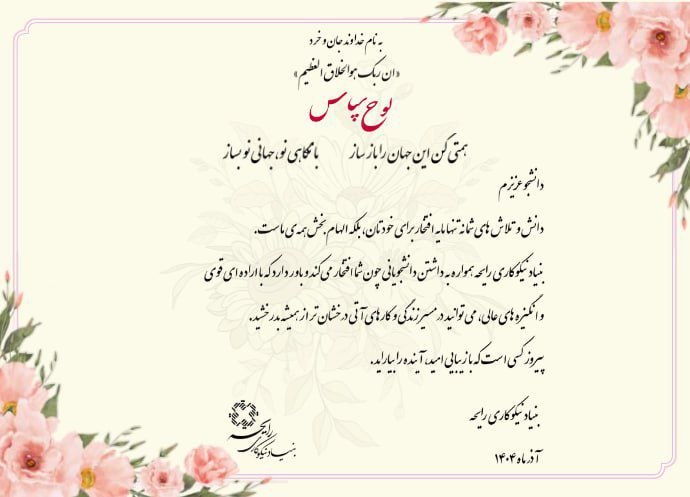 به نام خداوند جان و خرد
«ان ربک هو الخلاق العظیم»
لوح سپاس
همتی کن این جهان را باز ساز    با نگاهی نو، جهانی نو بساز
دانشجو عزیزم
دانش و تلاش های شما نه تنها مایه افتخار برای خودتان، بلکه الهام بخش همه ی ماست.
بنیاد نیکوکاری رایحه همواره به داشتن دانشجویانی چون شما افتخار می کند و باور دارد که با اراده ای قوی
و انگیزه های عالی، می توانید در مسیر زندگی و کارهای آتی درخشان تر از همیشه بدرخشید.
پیروز کسی است که با زیبایی امید، آینده را بیاراید.
بنیاد نیکوکاری رایحه
آذر ماه ۱۴۰۴
رایحه
بنیاد نیکوکاری